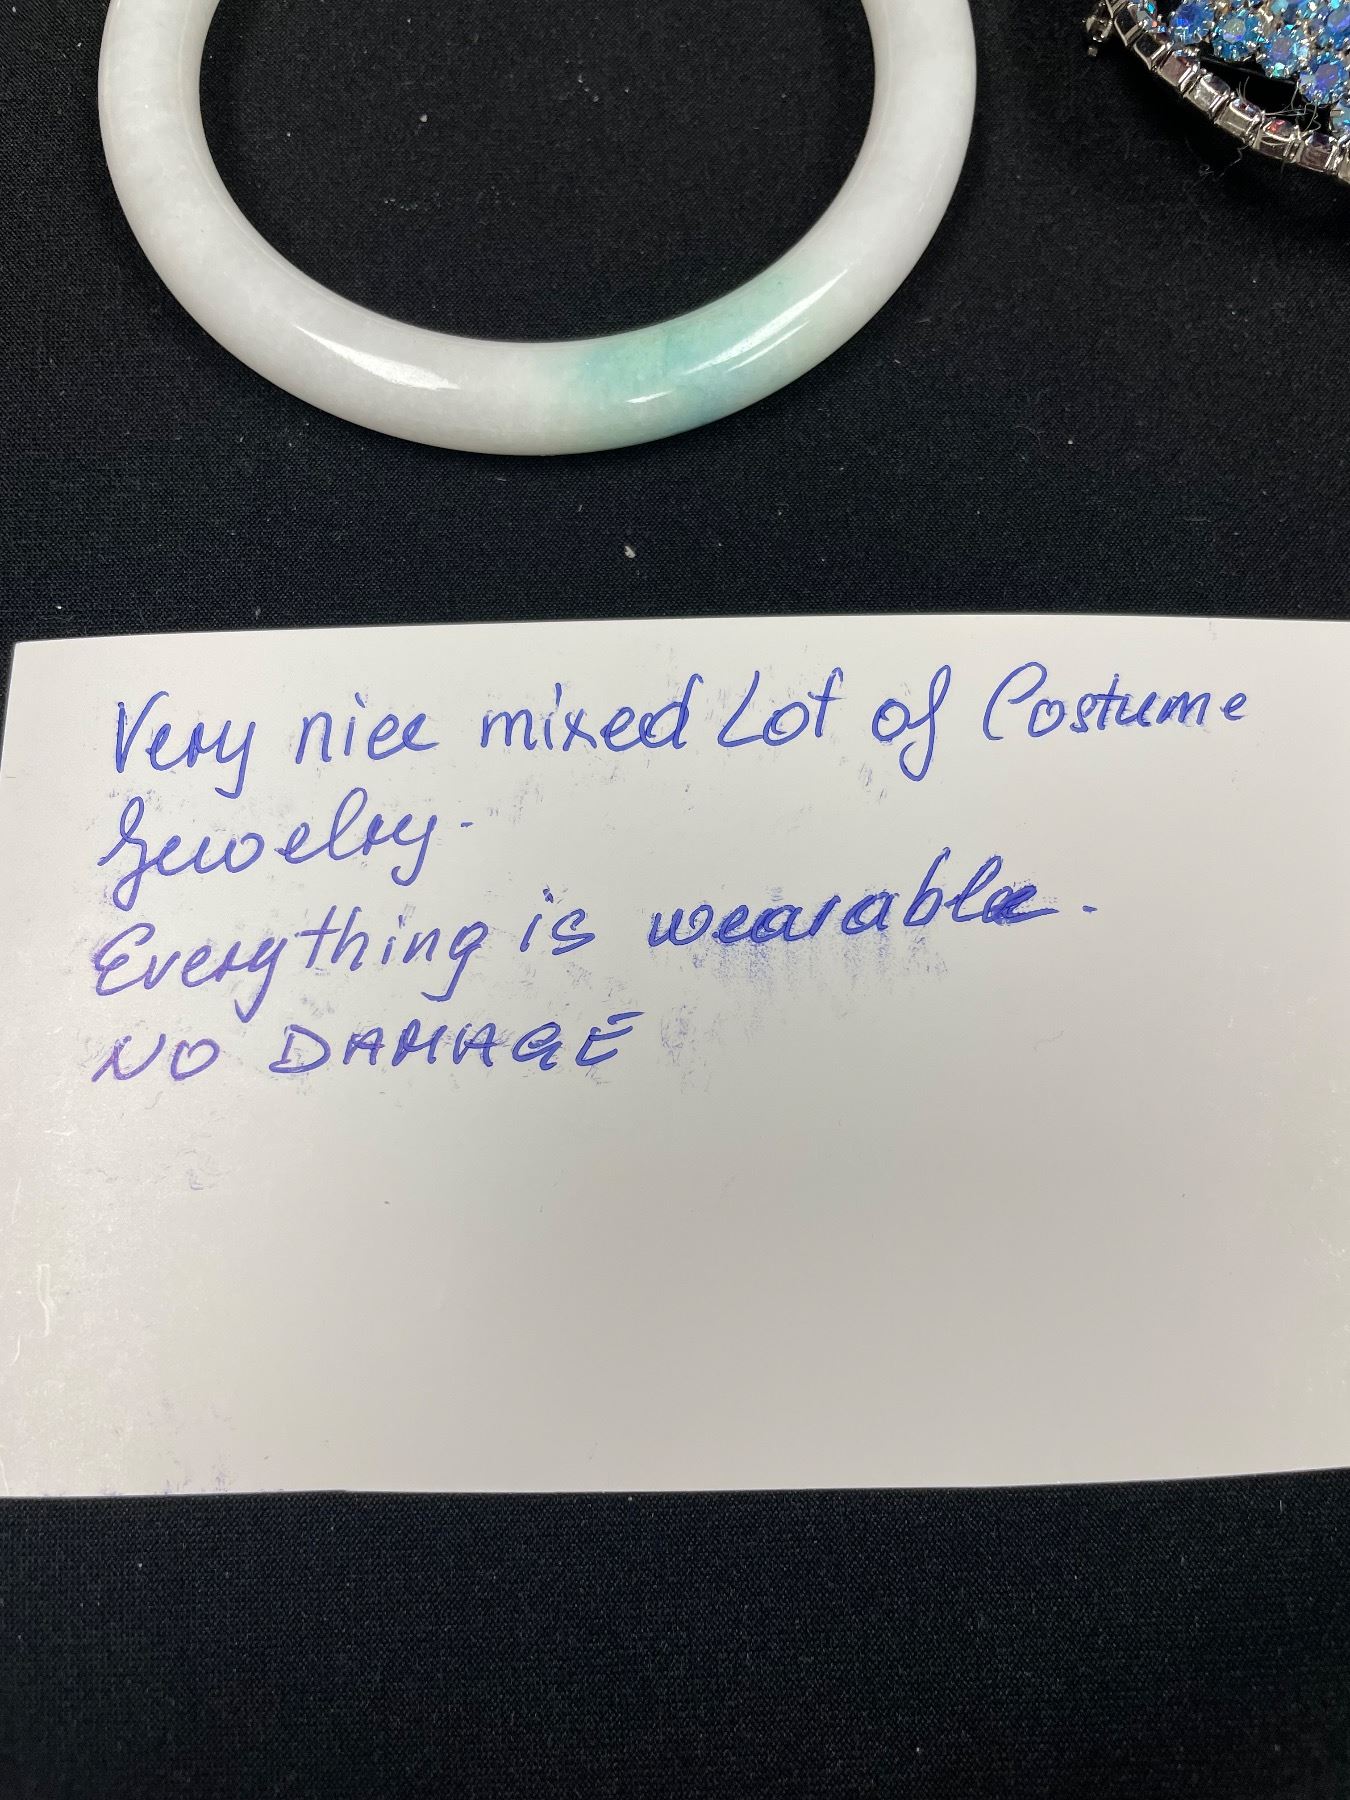 Very nice mixed Lot of Costume
Jewelry.
Everything is wearable.
NO DAMAGE